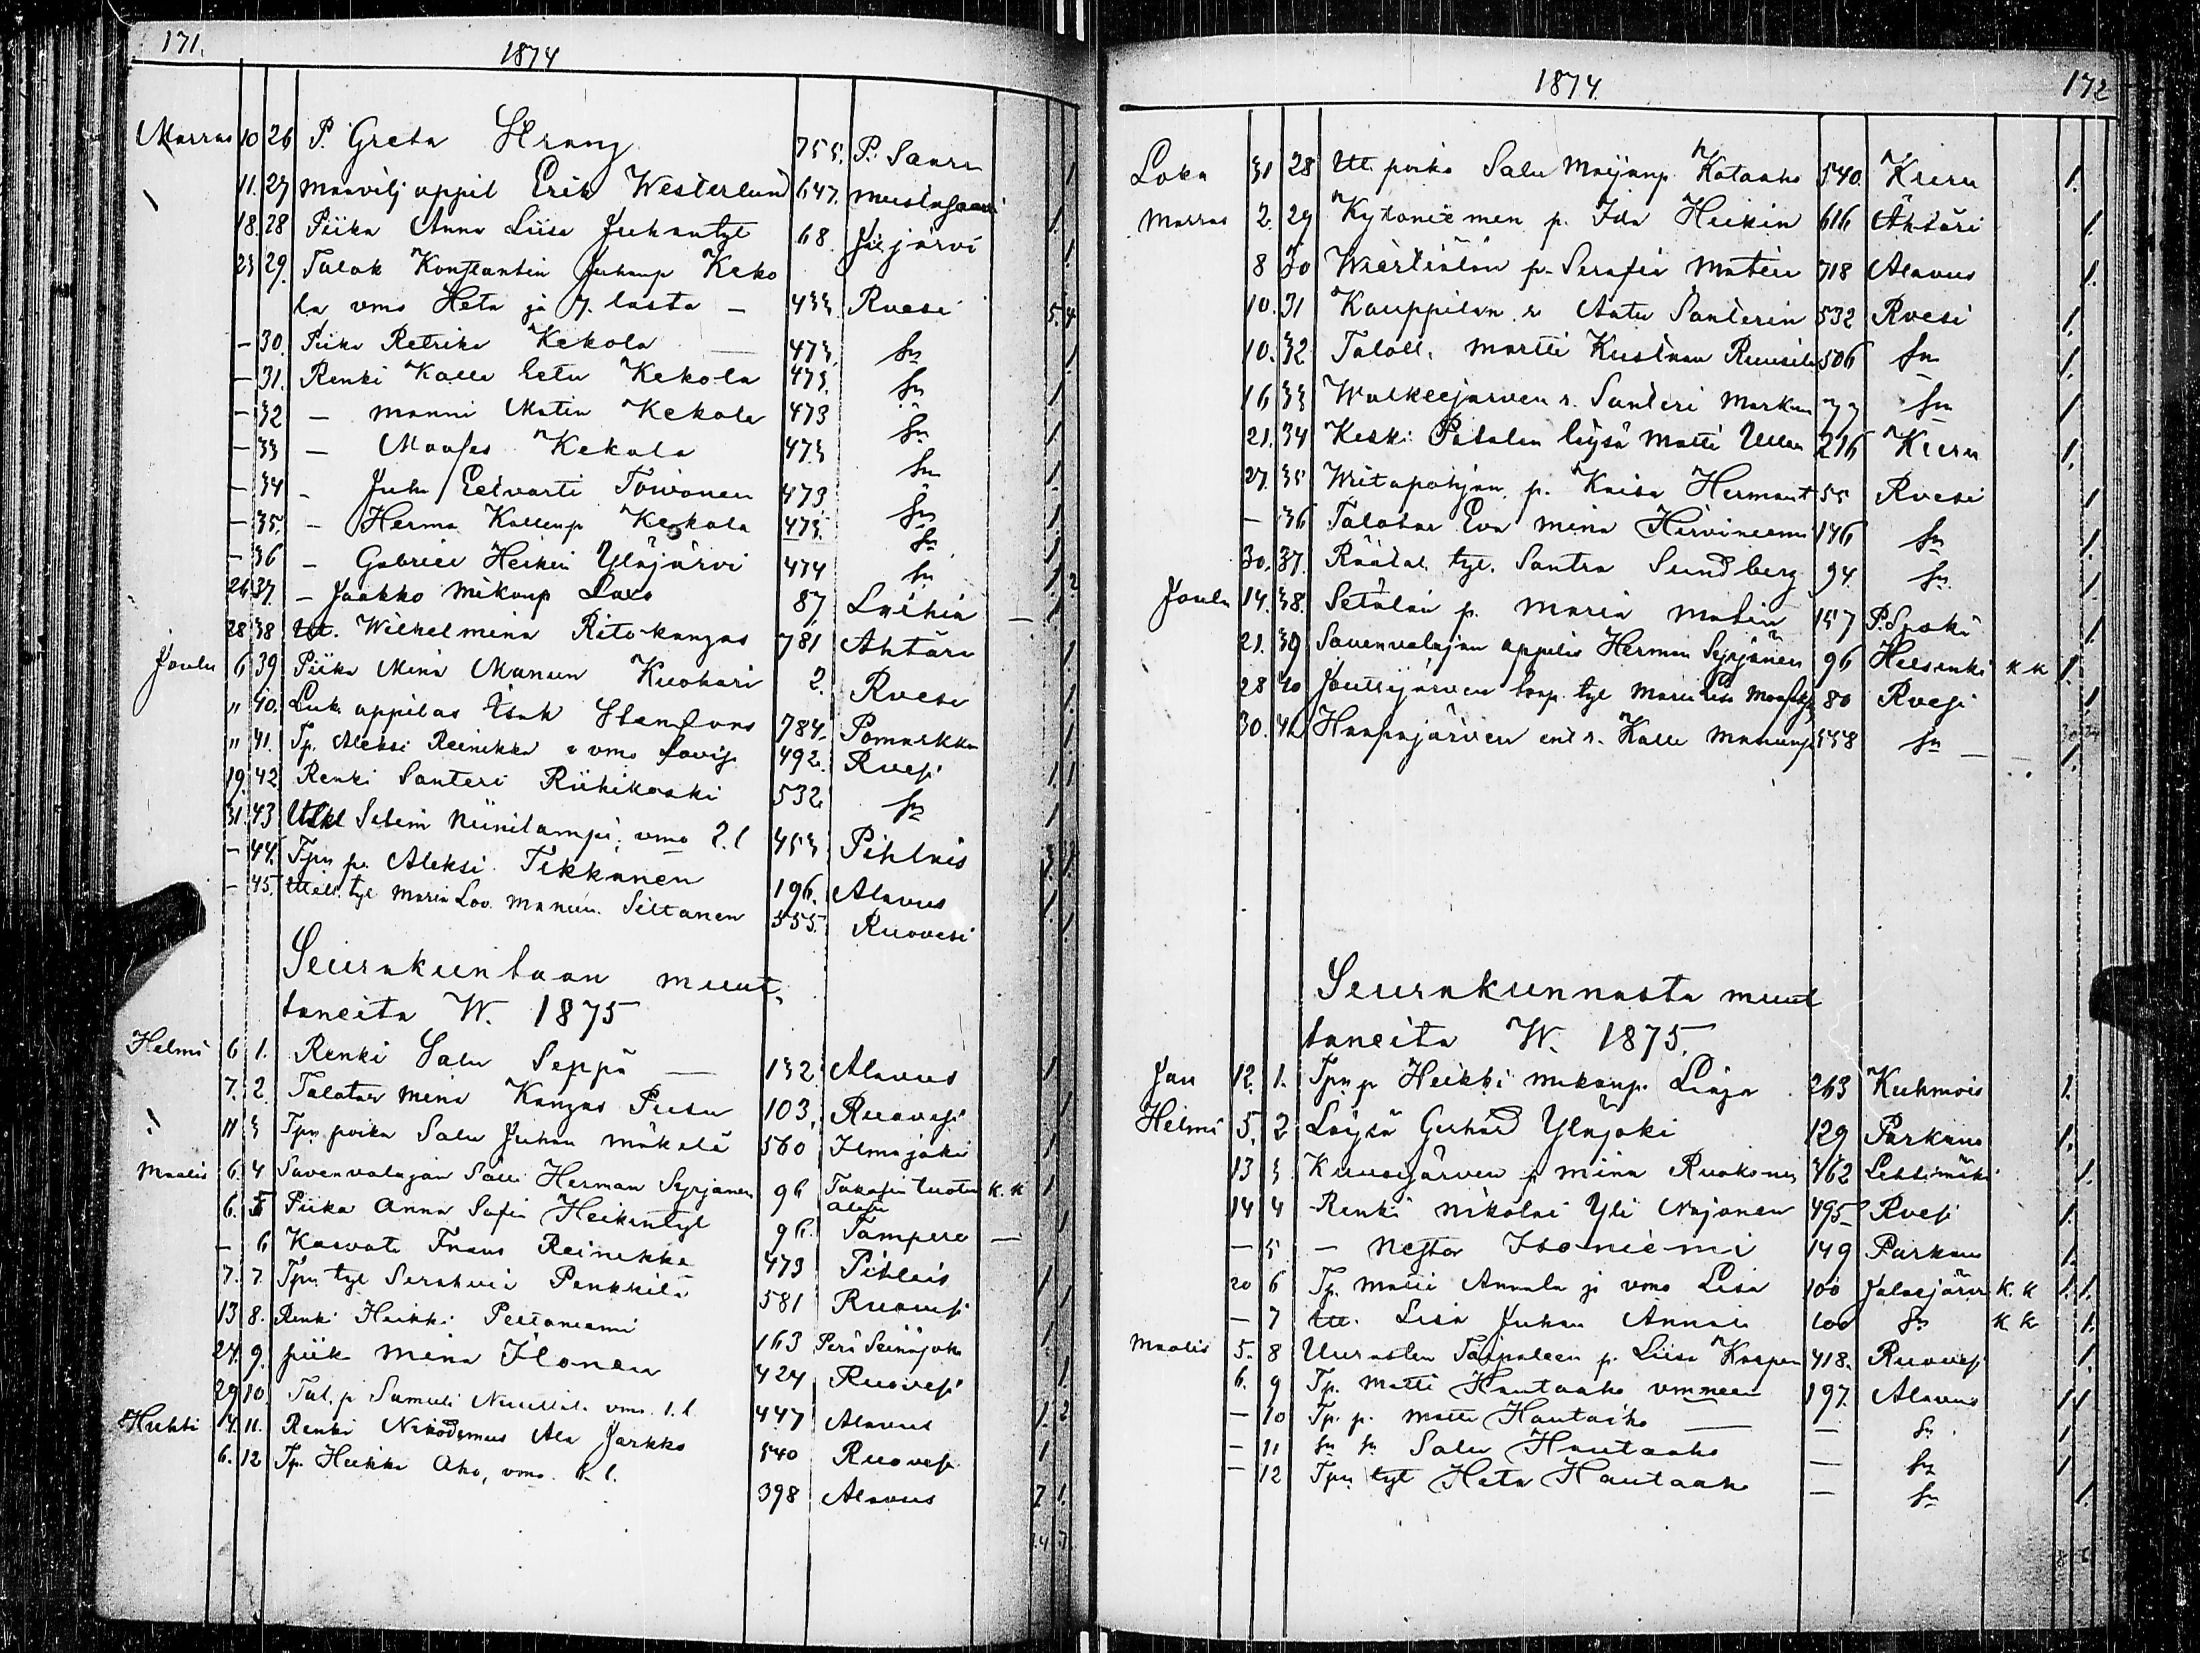 171.
1874
Marras 10 26 P. Greta Strang 755. P. Saari 1
11. 27 maavilj oppil Erik Westerlund 647. Mustasaari 1.
18. 28 Piika Anna Liisa Juhantyt 68 Jaljärvi 1.
23 29. Talok Konstantin Juhanp Keko
la vmo Heta ja 7. lasta – 433. Rvesi 5. 4
– 30. Piika Retrika Kekola — 473. sn 1
– 31. Renki Kalle Eetu Kekola 473. sn 1
– 32 – Manni Matin Kekola 473 sn 1
– 33 – Mooses Kekola 473 sn 1.
– 34 – Juha Eetvartti Toivonen 473 sn 1
– 35. – Herma Kallenp Keskola 473. sn 1
– 36 – Gabriel Heikin Yläjärvi 474 sn 1. 2
26 37. – Jaakko Mikonp Laxo 87 Laihia — 1
28 38 Itt. Wilhelmina Ritokangas 781 Ahtäri 1
Joulu 6 39 Piika Mina Manun Kuohari 2. Rvesi 1
" 40. Luk. appilas Isak Stenfors 784. Pomarkku 1
" 41. Tp. Aleksi Reinikka & vmo Lovis. 492. Rvesi 1. 1
19. 42 Renki Santeri Riihikoski 532. sn 1
31. 43 Itlkl Selim Niinilampi, vmo 2. l 453 Pihlais 3. 1.
– 44. Tpn p. Aleksi Tikkanen 196. Alavus 1.
– 45. Itell. tyt Maria Lov. Manun. Siltanen 555. Ruovesi 1.
Seurakuntaan muut,
taneita W. 1875
Helmi 6 1. Renki Salu Seppä — 132 Alavus 1
7. 2. Talotar Mina Kangas Pusu 103. Ruovesi 1
11 3 Tpn poika Salu Juhan Mäkelä 560 Ilmajoki 1
Maalis 6. 4 Savenvalajan Sälli Herman Syrjänen 96 K. K 1.
6. 5 Piika Anna Sofia Heikintyt 96. Tampere — 1
– 6 Kasvate Frans Reinikka 473 Pihlais 1
7. 7. Tpn tyt Serahvia Pankkila 581 Ruovesi 1
13 8. Renki Heikki Peltoniemi 163 Perä Seinäjoki 1.
24. 9. piik Mina Ilonen 424 Ruovesi 1.
29 10. Tal. p Samuli vmo. 1. l 447 Alavus 1. 2
Huhti 4. 11. Renki Nikodemus Ala Jarkko 540 Ruovesi 1
6. 12 Tp. Heikki Aho, vmo. 6. l. 398 Alavus 7 1.
14 7.
1874.
172
Loka 31 28 Itt. poika Salu Maijanp Kataaho 540. Kuru 1.
Marras 2. 29 Kytöniemen p. Ida Heikin 616 Ähtäri 1.
8 30 p. Serafia Matin 718 Alavus 1.
10. 31 Kauppilan r. Antu Santerin 532 Rvesi 1.
10. 32 Taloll. Martti Kustaan Ruusila 506 sn 1.
16 33 Walkeejärven r. Santeri Markun 77 sn 1
21. 34 Keski Petolan löysä Matti Ullan 216 Kuru 1.
27. 35 Writapohjan p. Kaisa Hermant 55 Rvesi 1
– 36 Talotar Eva Mina Hirviniemi 146 sn 1.
30. 37. Räätäl. tyt. Santra Sundberg 94. sn 1
Joulu 14. 38. Setälän p. Maria Matin 157 P. Sjoki 1
21. 39 Savenvalajan oppilis Herman Syrjänen 96 Helsinki K K 1.
28 40 Joutsijärven torp. tyt Maria Lisa Moosest. 80 Rvesi 1
30. 41 Haapajärven ent r. Kalle Manunp 558 sn — 1.
30 34
Seurakunnasta muut
taneita W. 1875.
Jan 12. 1. Tpn p Heikki Mikonp. Liaja 263 Kuhmois 1.
Helmi 5. 2 Löysä Gerhard Yläjoki 129 Parkano 1.
13 3 Kuusijärven p Mina Ruokonen 362 Lehtimäki 1.
14 4 Renki Nikolai Yli Najonen 495 Rvesi 1.
– 5 – Nestor Isoniemi 149 Parkano 1.
20 6 Tp. Matti Annala ja vmo Lisa 100 Jalasjärvi K. K 1. 1.
– 7 Itt. Lisa Juhan Annal 100 sn K K 1.
Maalis 5. 8 Uurasten Taipaleen p. Liisa Kaspen 418. Ruovesi 1.
6. 9 Tp. Matti Hautaaho vmneen 197. Alavus 1 1
– 10 Tp. p. Matti Hautaaho — sn 1
– 11 sn sn Salu Hautaaho — sn 1
– 12 Tpn tyt Heta Hautaaho — sn 1.
8 6